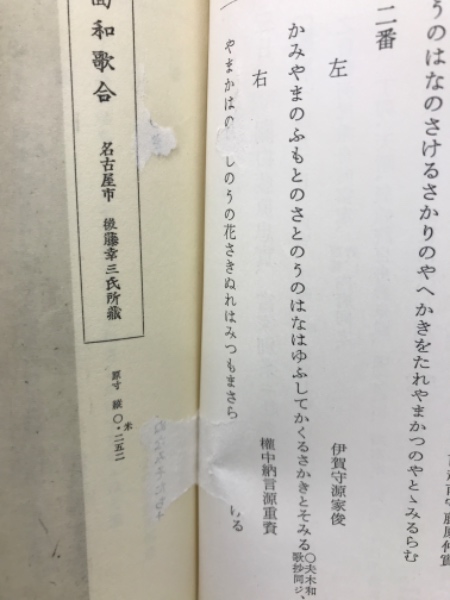 うのはなのさけるさかりのやへかきをたれやまかつのやとゝみるらむ
二番
左
伊賀守源家俊
かみやまのふもとのさとのうのはなはゆふしてかくるさかきとそみる
〇夫木和
歌抄同ジ、
右
權中納言源重資
やまかはの
しのうの花さきぬれはみつもまさら
ける
和歌合
名古屋市 後藤幸三氏所藏
原寸 縱 〇・二五二
米